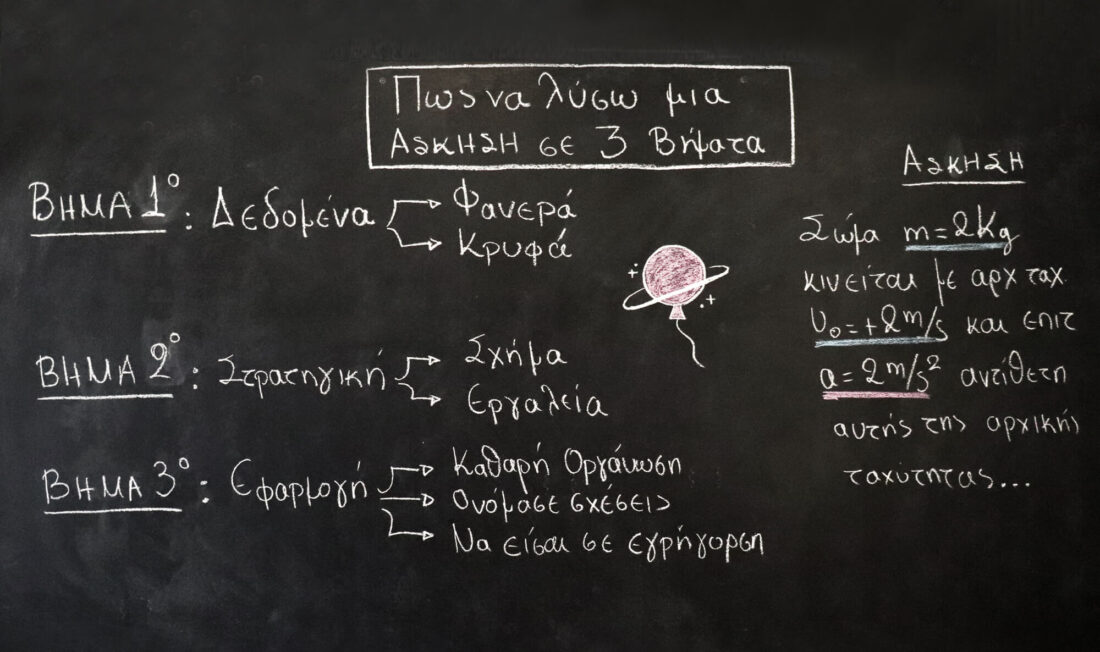 Πως να λύσω μια
ΑΣΚΗΣΗ σε 3 Βήματα
ΒΗΜΑ 1º: Δεδομένα
Φανερά
Κρυφά
ΒΗΜΑ 2º: Στρατηγική
Σχήμα
Εργαλεία
ΒΗΜΑ 3º: Εφαρμογή
Καθαρή Οργάνωση
Ονόμασε σχέσεις
Να είσαι σε εγρήγορση
ΑΣΚΗΣΗ
Σώμα m=2Kg
κινείται με αρχ ταχ.
υ₀=+2m/s και επιτ
a=2m/s² αντίθετη
αυτής της αρχικής
ταχύτητας...